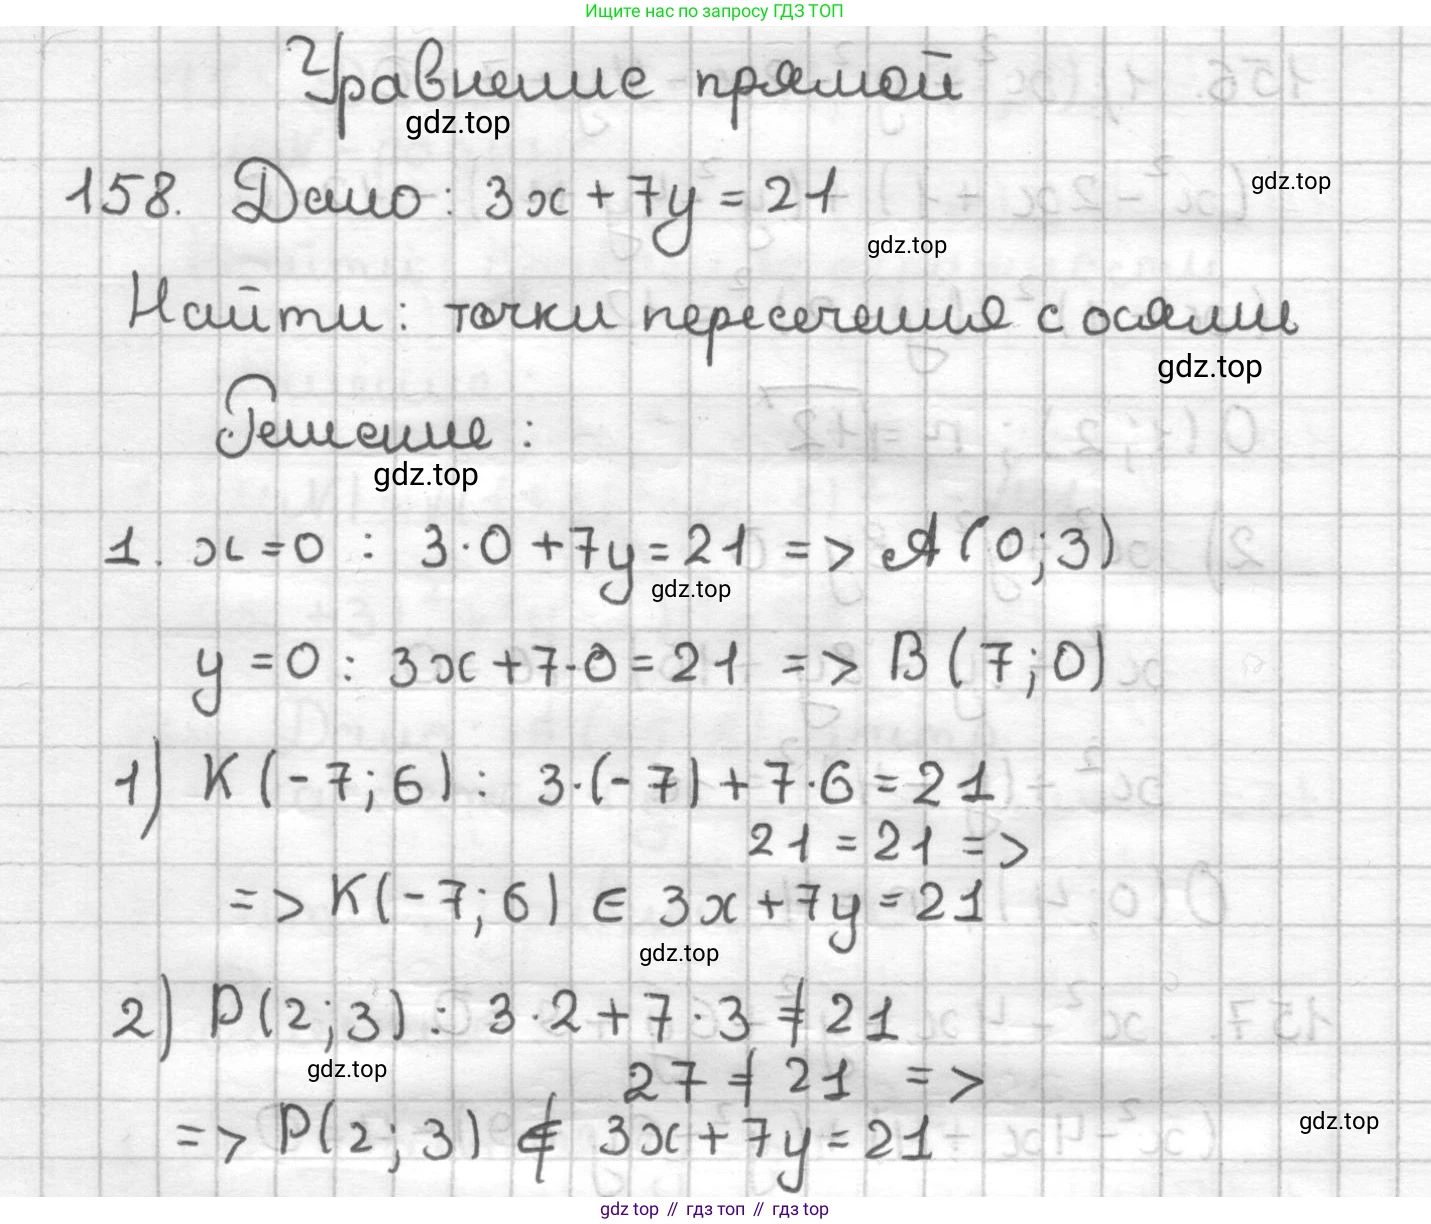 Ищите нас по запросу ГДЗ ТОП
Уравнение прямой
gdz.top
158. Дано: 3x + 7y = 21
gdz.top
gdz.top
Найти: точки пересечения с осями
gdz.top
Решение:
gdz.top
1. x = 0 : 3·0 + 7y = 21 => A(0;3)
gdz.top
y = 0 : 3x + 7·0 = 21 => B(7;0)
1) K(-7;6) : 3·(-7) + 7·6 = 21
21 = 21 =>
=> K(-7;6) ∈ 3x + 7y = 21
gdz.top
2) P(2;3) : 3·2 + 7·3 ≠ 21
gdz.top
27 ≠ 21 =>
gdz.top
=> P(2;3) ∉ 3x + 7y = 21
gdz top // гдз топ // гдз top